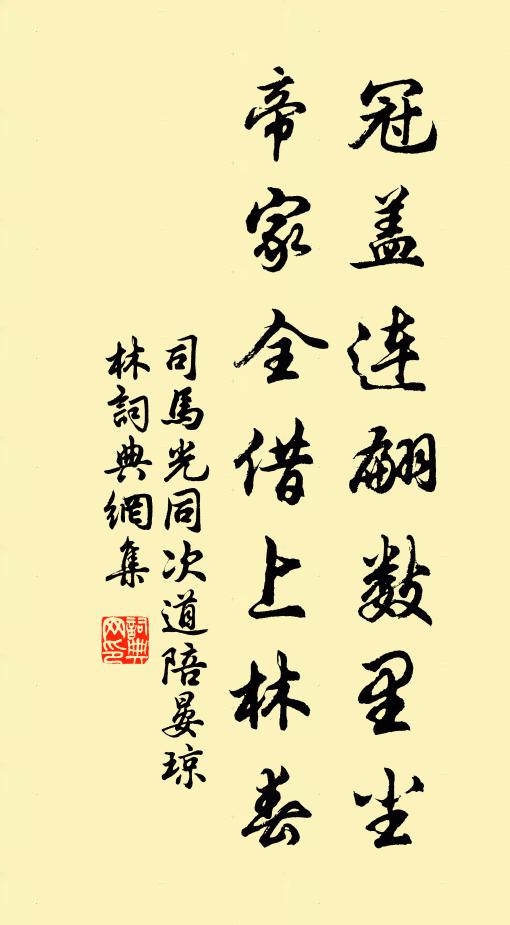 冠盖连翩数里尘
帝家全借上林春
司馬光同次道陪晏琼
林詞典網集
詞典网印